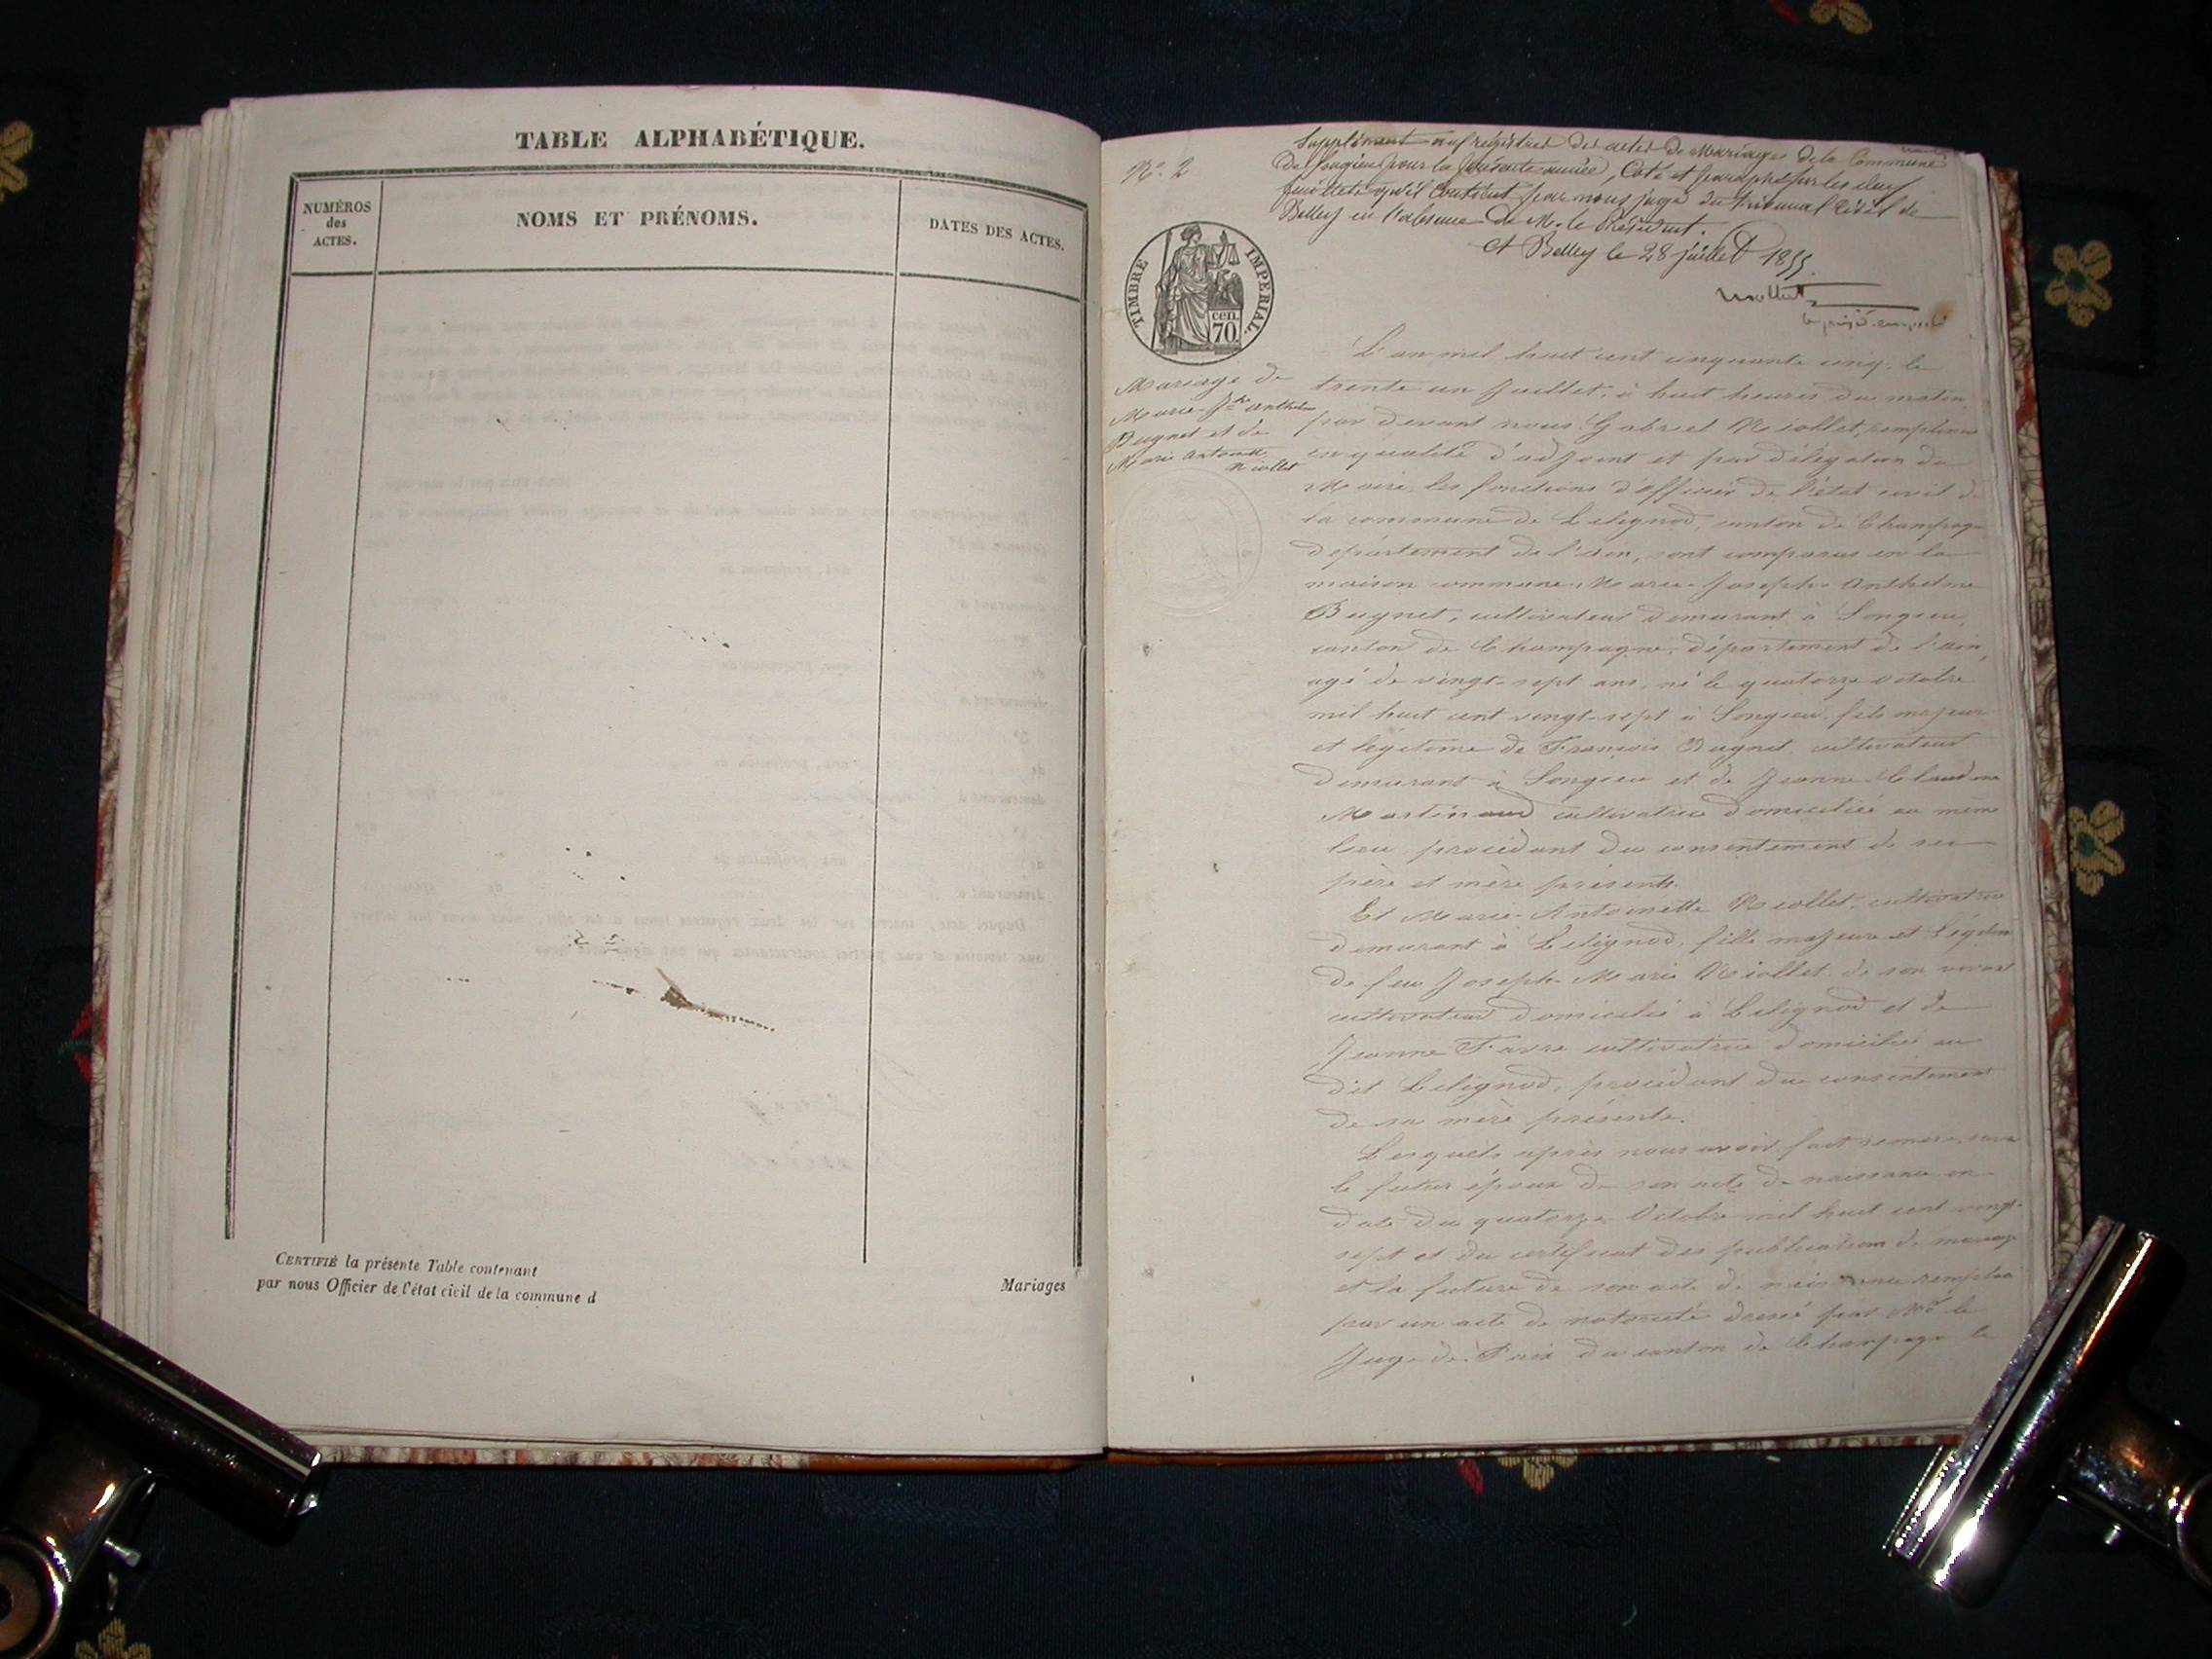 TABLE ALPHABÉTIQUE.
NUMÉROS
des
ACTES.
NOMS ET PRÉNOMS.
DATES DES ACTES.
CERTIFIÉ la présente Table contenant
par nous Officier de l'état civil de la commune d
Mariages
N.o 2
Supplément aux registres des actes de Mariages de la Commune
De Songieu pour la présente année, Coté et paraphé sur les deux
feuillets qu'il contient par nous juge du tribunal Civil de
Belley en l'absence de M. le Président.
A Belley le 28 juillet 1855.
TIMBRE IMPERIAL.
cen.
70.
Mariage de
Marie-Jh Anthelme
Bugnet et de
Marie Antoinette
Niollet
L'an mil huit cent cinquante cinq, le
trente un Juillet, à huit heures du matin
par devant nous Gabriel Niollet, remplissant
en qualité d'adjoint et par délégation du
Maire les fonctions d'officier de l'état civil de
la commune de Lilignod, canton de Champagne
département de l'ain, sont comparus en la
maison commune Marie-Joseph-Anthelme
Bugnet, cultivateur demurant à Songieu,
canton de Champagne, département de l'ain,
agé de vingt-sept ans, né le quatorze octobre
mil huit cent vingt-sept à Songieu, fils majeur
et légitime de François Bugnet, cultivateur
demurant à Songieu et de Jeanne-Claudine
Martinaud cultivatrice domiciliée au même
lieu procédant du consentement de ses
père et mère présents.
Et Marie-Antoinette Niollet, cultivatrice
demurant à Lilignod, fille majeure et légitime
de feu Joseph-Marie Niollet de son vivant
cultivateur domicilié à Lilignod et de
Jeanne Favre cultivatrice domiciliée au
dit Lilignod, procédant du consentement
de sa mère présente.
Lesquels après nous avoir fait remise, savoir
le futur époux de son acte de naissance en
date du quatorze Octobre mil huit cent vingt-
sept et du certificat des publications de mariage
et la future de son acte de naissance remplacé
par un acte de notoriété dressé par Mr le
Juge de Paix du canton de Champagne le